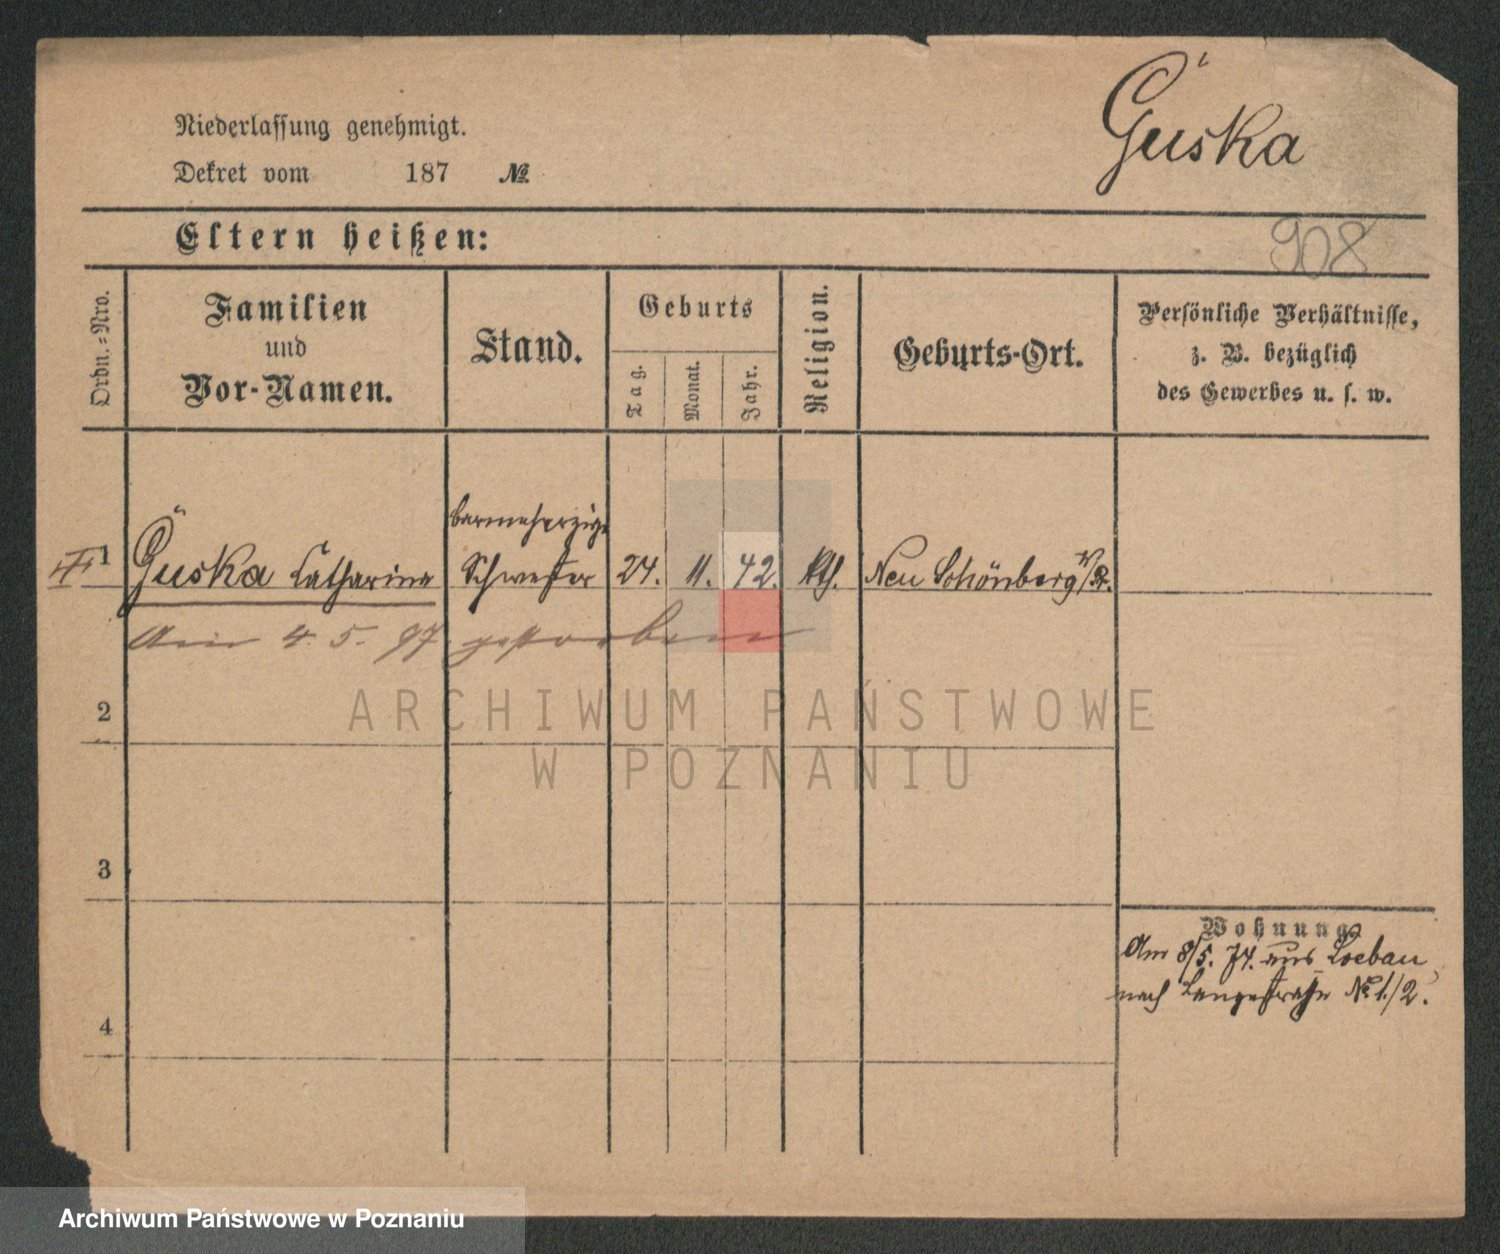 Guska
Niederlassung genehmigt.
Dekret vom 187 №
Eltern heißen:
908
Ordn.=Nro.
Familien
und
Vor-Namen.
Stand.
Geburts
Tag.
Monat.
Jahr.
Religion.
Geburts-Ort.
Persönliche Verhältnisse,
z. B. bezüglich
des Gewerbes u. s. w.
barmherzige
1 Guska Catharina Schwester 24. 11. 42. kth. Neu Schönberg
Am 4. 5. 97 gestorben
2
3
4
Wohnung
Am 8/5. 74. aus Loebau
nach Langestraße № 1/2.
ARCHIWUM PAŃSTWOWE
W POZNANIU
Archiwum Państwowe w Poznaniu